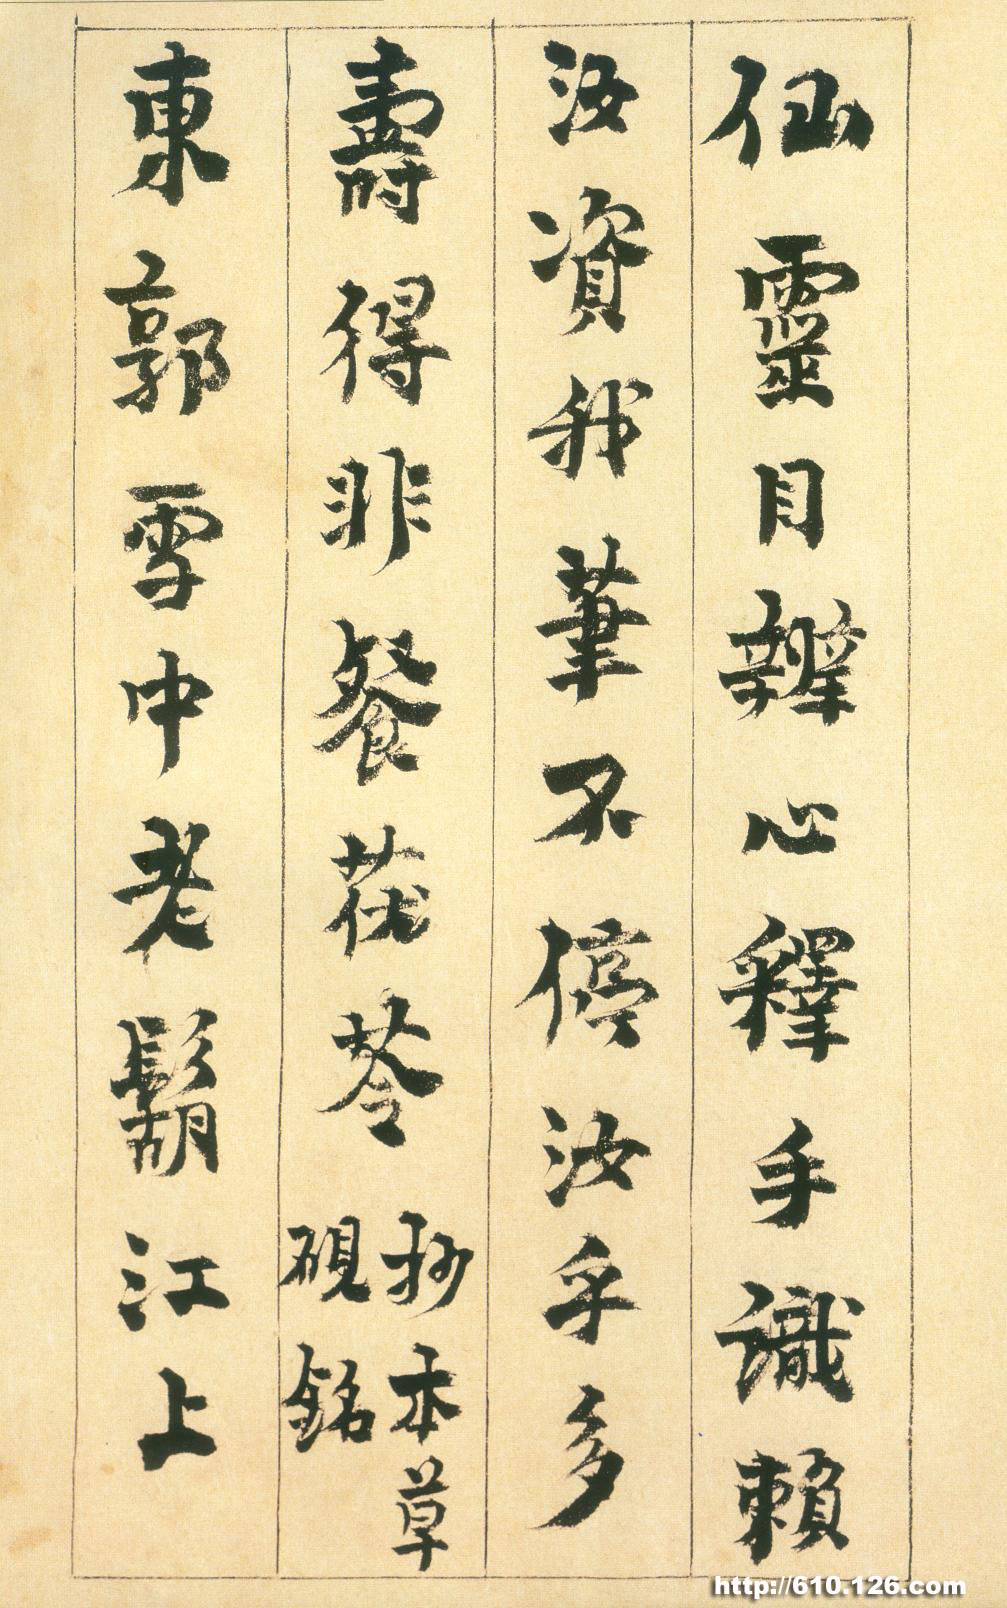 仙靈目辨心釋手識賴
汝資我筆不停汝乎多
壽得非餐茯苓抄本草硯銘
東郭雪中老鬍江上
http://610.126.com